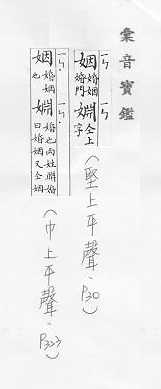 彙音寶鑑
ㄧㄣ 姻 婚姻婚門 ㄧㄣ 婣 仝上字
(堅上平聲.P30)
ㄧㄣ 姻 婚姻也 ㄧㄣ 婣 婚也兩姓聯婚曰婚姻又仝姻
(巾上平聲.P323)